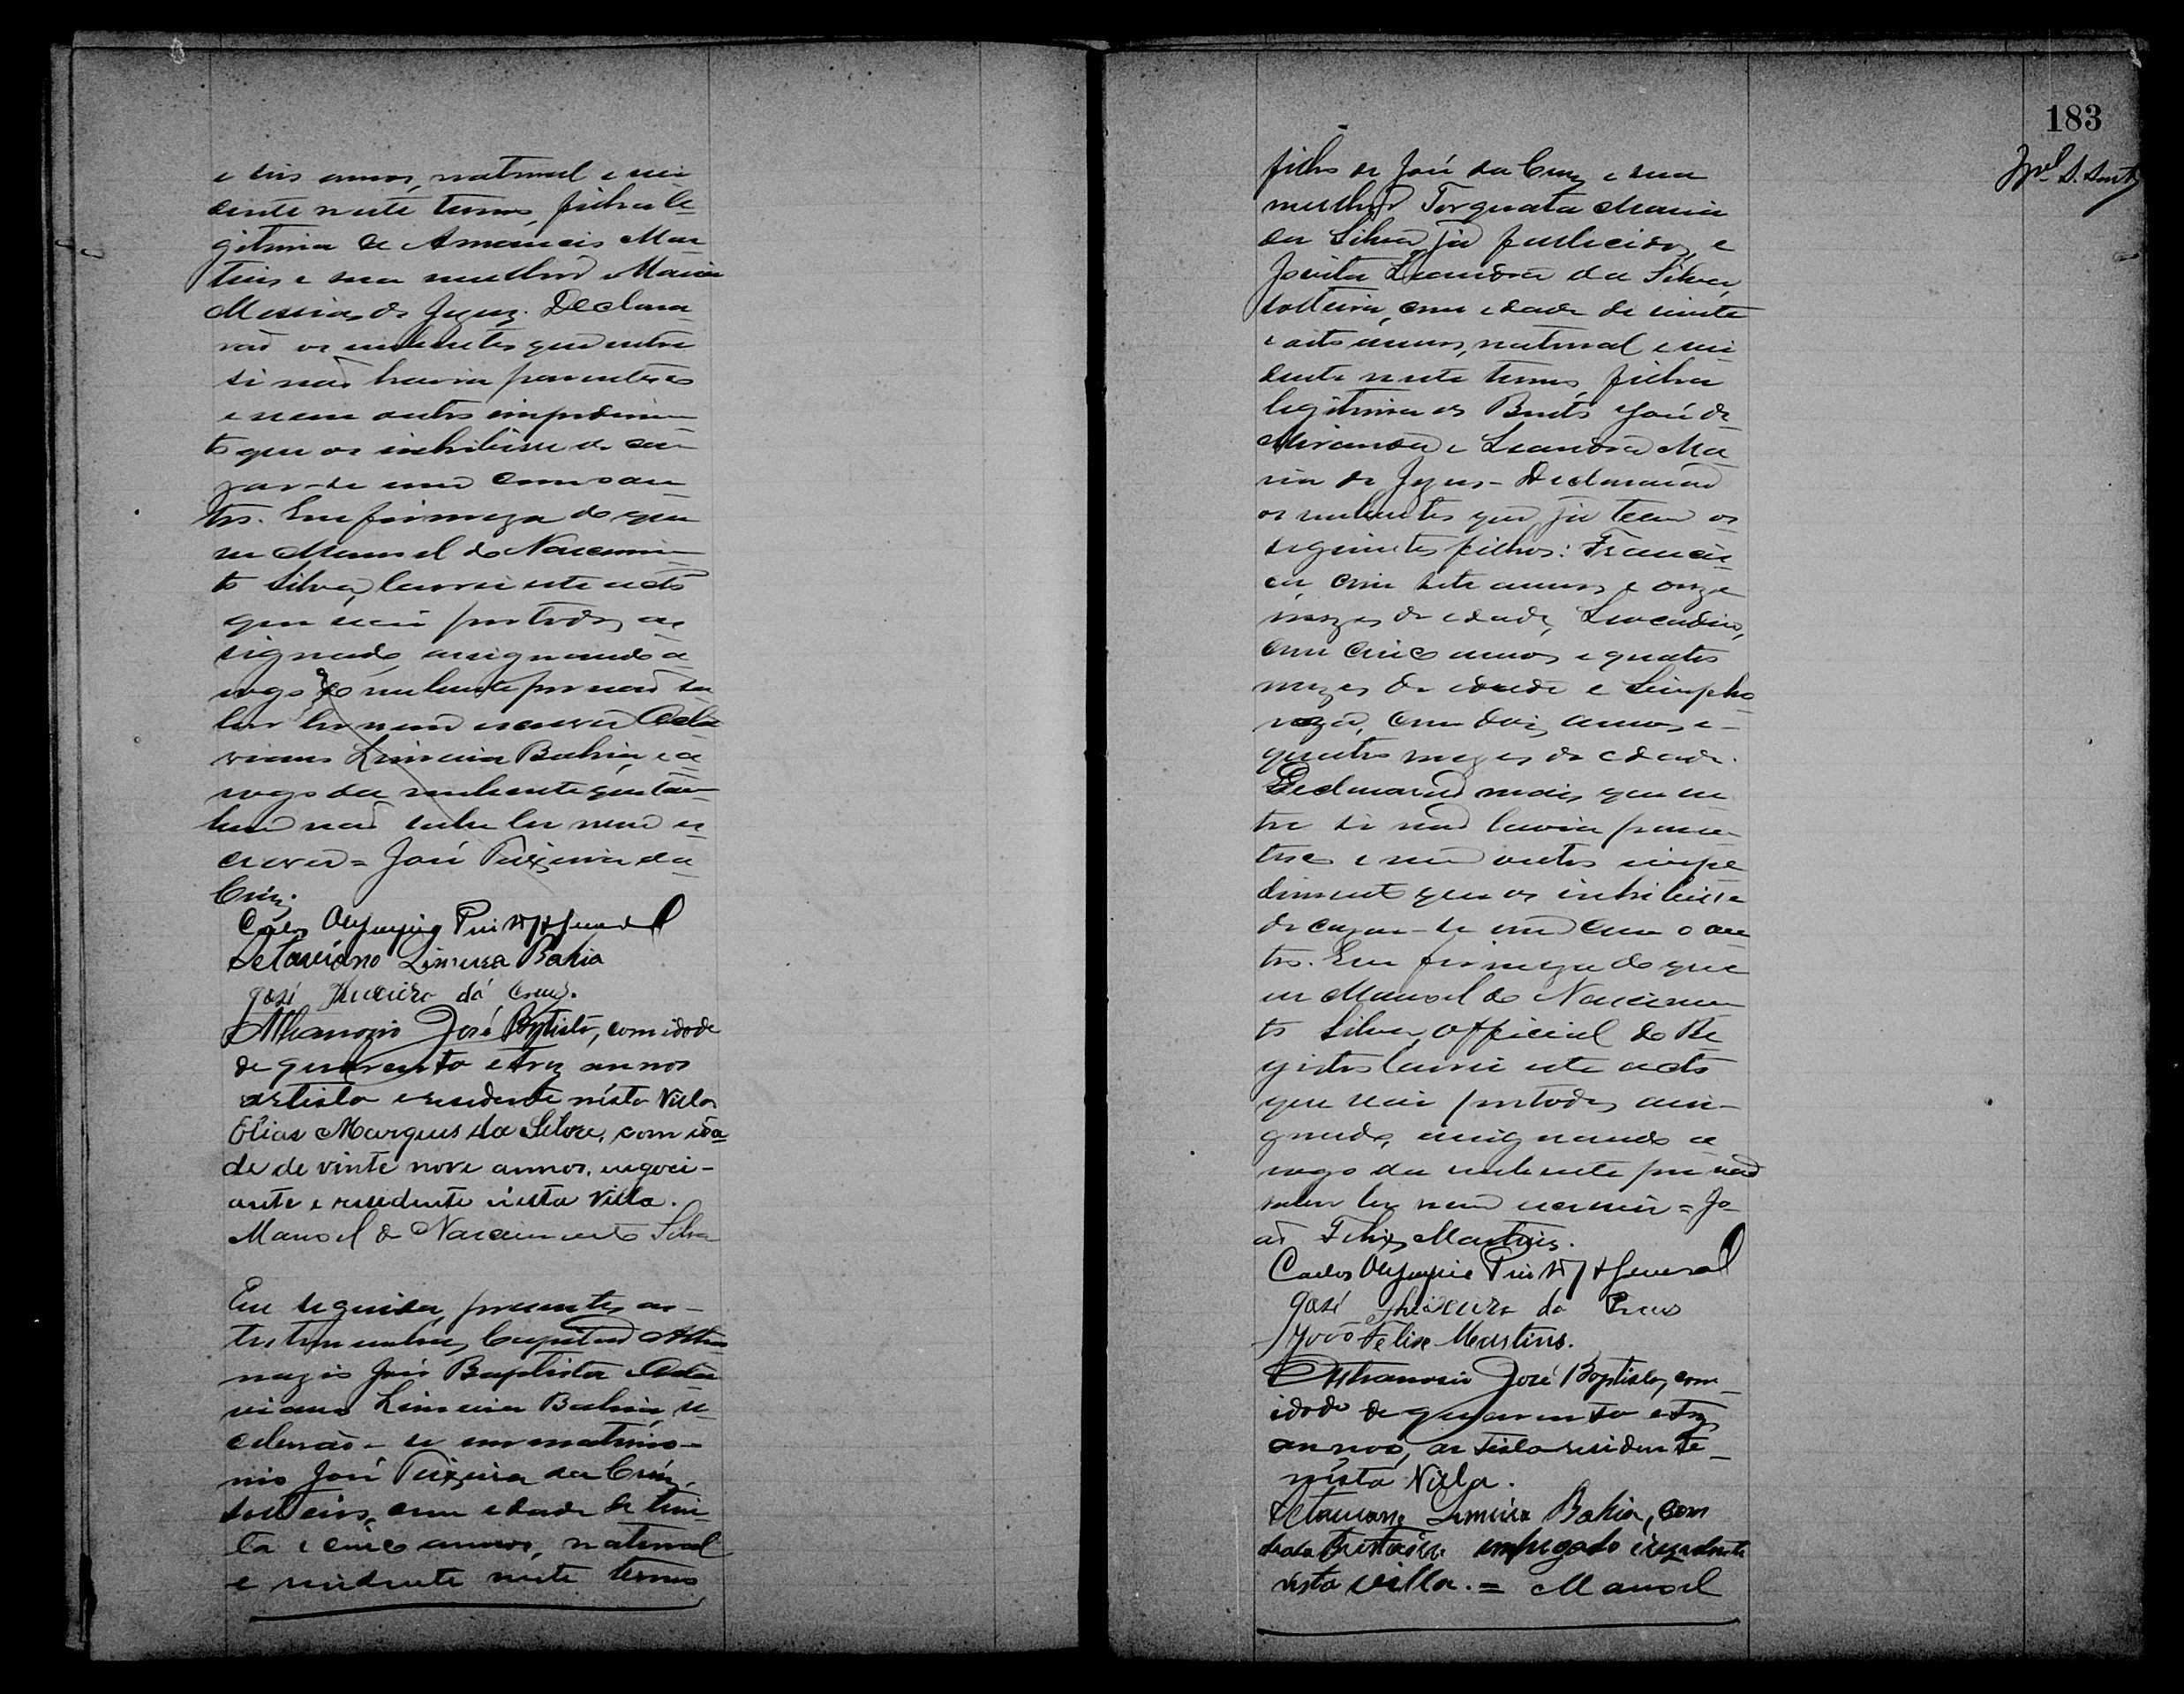 e seis annos, natural e resi
dente neste termo, filha le
gitima de Amancio Mar
tins e sua mulher Maria
Messias de Jezuz. Declara
rão os nubentes que entre
si não havia parentesco
e nem outro impedimen
to que os inhibisse de ca
zar-se um com o ou
tro. Em firmeza do que
eu Manoel do Nascimen
to Silva, lavrei este acto
que vai por todos as
signado, assignando a
rogo do nubente por não sa
ber ler nem escrever Octa
viano Limeira Bahia, e a
rogo da nubente que tam
bem não sabe ler nem es
crever = José Teixeira da
Cruz.
Carlos Olympio
Octaviano Limeira Bahia
José Theixeira da Cruz.
Athanazio José Baptista, com idade
de quarenta e trez annos
artista e residente nésta Villa
Elias Marques da Silva, com ida
de de vinte nove annos, negoci-
ante e residente nésta Villa.
Manoel do Nascimento Silva
Em seguida, presentes as
testemunhas, Capitão Atha
nazio José Baptista e Octa
viano Limeira Bahia, re
ceberão-se em matrimo-
nio José Teixeira da Cruz,
solteiro, com edade de trin
ta e cinco annos, natural
e residente neste termo
183
filho de José da Cruz e sua
mulher Torquata Maria
da Silva, já fallecidos, e
Leandra da Silva,
solteira, com edade de vinte
e oito annos, natural e resi
dente neste termo, filha
legitima de Bento José de
Miranda e Leandra Ma
ria de Jezus - Declararão
os nubentes que já teem os
seguintes filhos: Francis
ca, com sete annos e onze
mezes de edade, Leocadia,
com cinco annos e quatro
mezes de edade e Simpho
roza, com dois annos e
quatro mezes de edade.
Declararão mais que en
tre si não havia paren
tesco e nem outro impe
dimento que os inhibisse
de cazar-se um com o ou
tro. Em firmeza do que
eu Manoel do Nascimen
to Silva, Official do Re
gistro lavrei este acto
que vai por todos assi-
gnado, assignando a
rogo da nubente por não
saber ler nem escrever = Jo
ão Felix Martins.
Carlos Olympio
José Theixeira da Cruz
João Felix Martins.
Athanasio José Baptista, com
idade de quarenta e trez
annos, artista residente
nésta Villa.
Octaviano Limeira Bahia, com
empregado e rezidente
nésta Villa. = Manoel